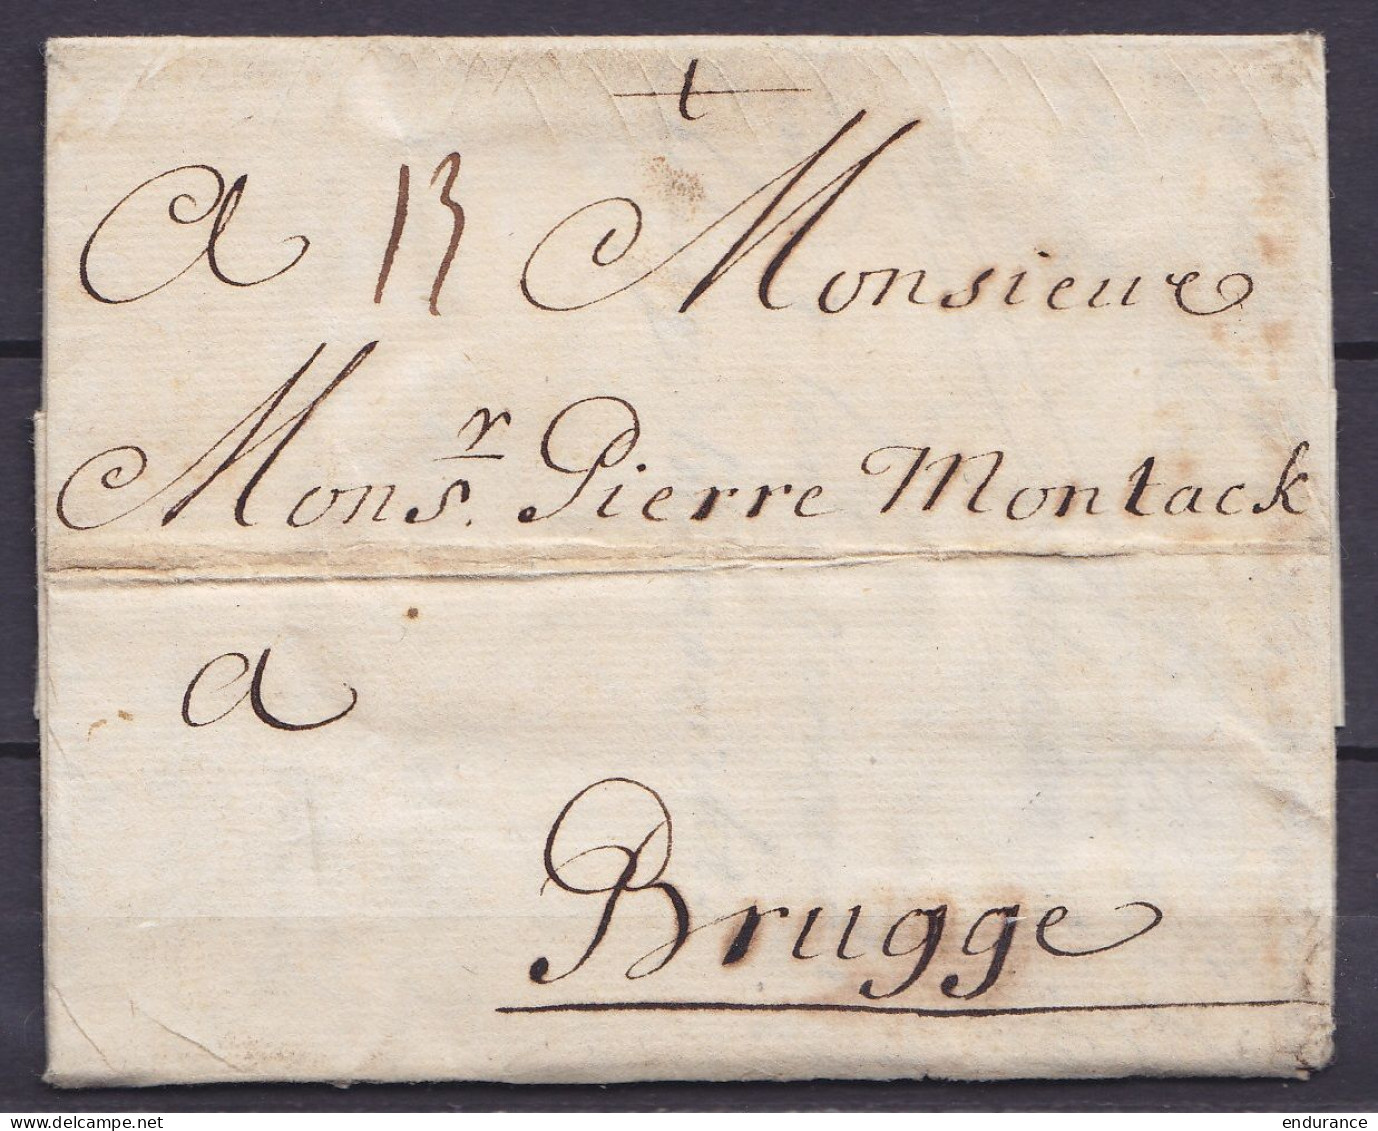 t
A 13 Monsieur
Mons.r Pierre Montack
a
Brugge
endurance